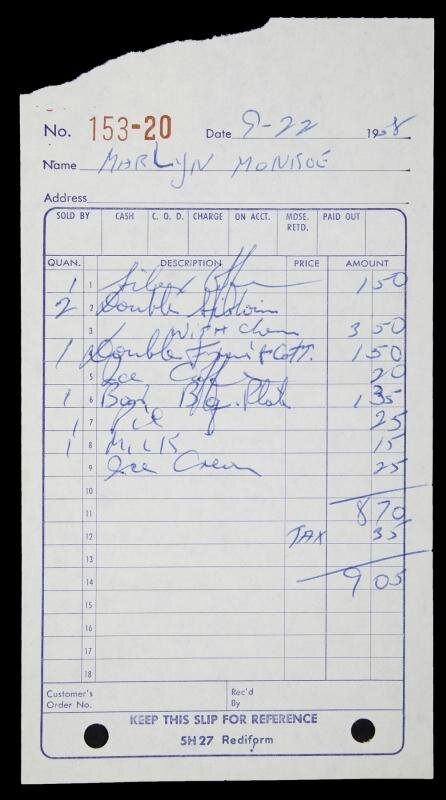 No. 153-20 Date 9-22 1958
Name MARLYN MONROE
Address
SOLD BY CASH C. O. D. CHARGE ON ACCT. MDSE. RETD. PAID OUT
QUAN. DESCRIPTION PRICE AMOUNT
1 1 1 50
2 2 Double Sirloin
3 WITH Chee 3 50
1 Double Fruit + Cott. 1 50
5 Ice Coffee 20
1 6 B.q. Plate 1 35
1 7 Pie 25
1 8 MILK 15
9 Ice Cream 25
10
11 8 70
12 TAX 35
13
14 9 05
15
16
17
18
Customer's Order No. Rec'd By
KEEP THIS SLIP FOR REFERENCE
5H27 Rediform